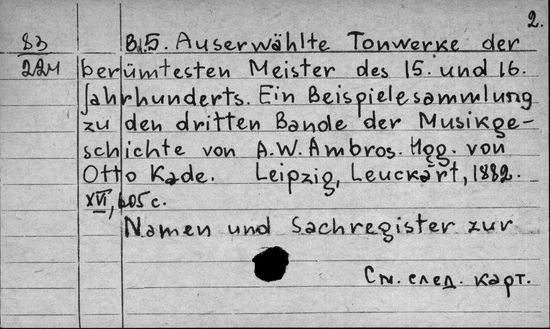 2.
83 Bd.5. Auserwählte Tonwerke der
22M berümtesten Meister des 15. und 16.
Jahrhunderts. Ein Beispielesammlung
zu den dritten Bande der Musikge-
schichte von A.W. Ambros. Hgg. von
Otto Kade. Leipzig, Leuckart, 1882.
XVI, 605 с.
Namen und Sachregister zur
См. след. карт.